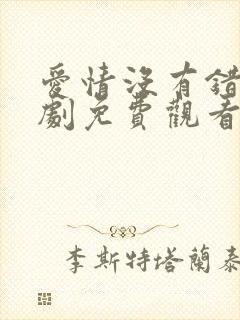 愛情沒有錯
劇免費觀看
李斯特塔蘭泰